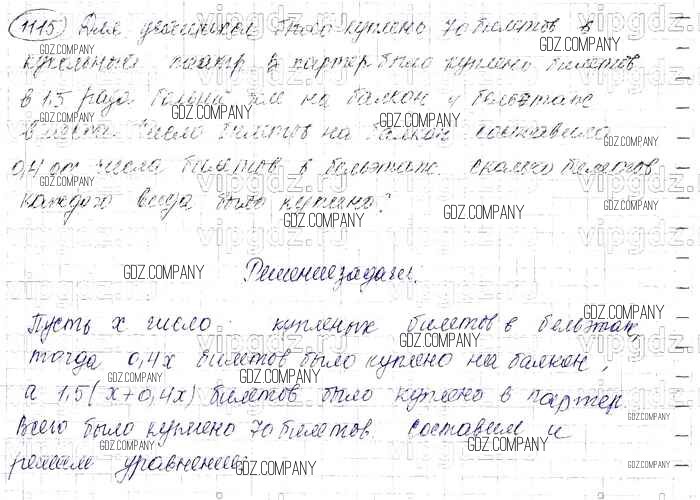 1115 Для учащихся было куплено 70 билетов в
кукольный театр. В партер было куплено билетов
в 1,5 раза больше, чем на балкон и бельэтаж
вместе. Число билетов на балкон составило
0,4 от числа билетов в бельэтаж. Сколько билетов
каждого вида было куплено?
Решение задачи.
Пусть x число купленых билетов в бельэтаж,
тогда 0,4x билетов было куплено на балкон,
а 1,5(x+0,4x) билетов было куплено в партер.
Всего было куплено 70 билетов. Составим и
решим уравнение: